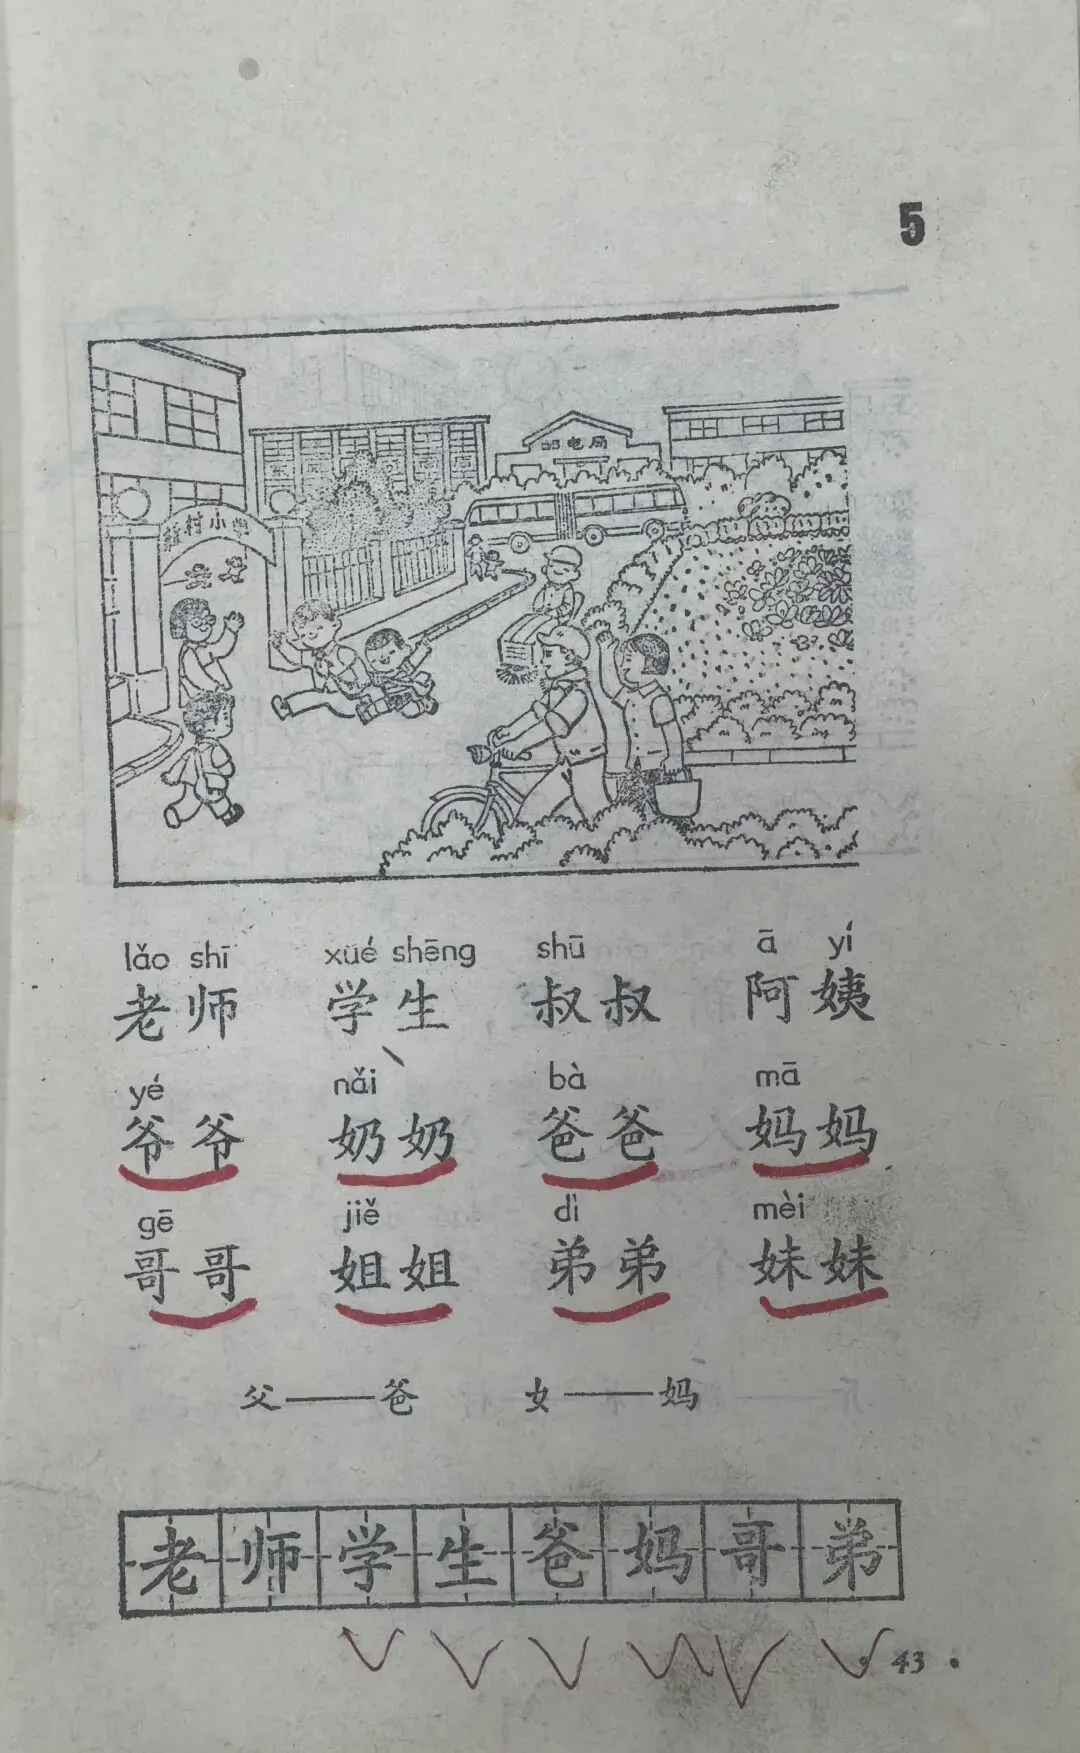 5
邮电局
村小学
lǎo shī xué shēng shū ā yí
老师 学生 叔叔 阿姨
yé nǎi bà mā
爷爷 奶奶 爸爸 妈妈
gē jiě dì mèi
哥哥 姐姐 弟弟 妹妹
父——爸 女——妈
老师学生爸妈哥弟
• 43 •